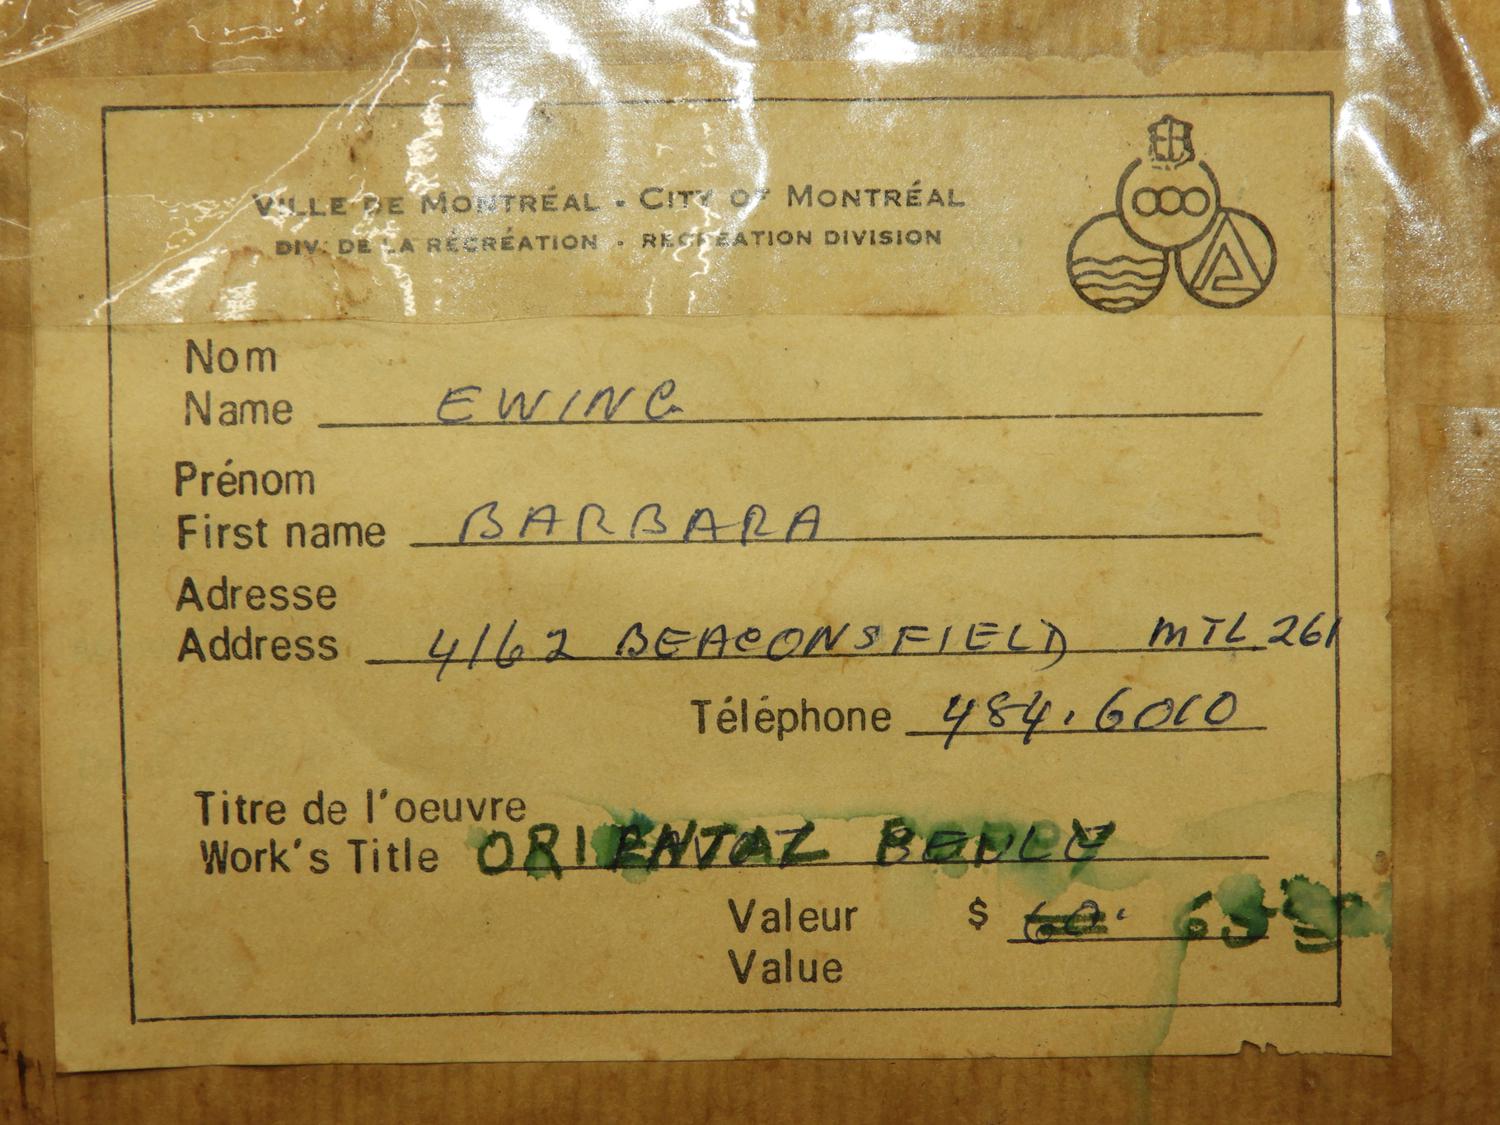 VILLE DE MONTRÉAL · CITY OF MONTRÉAL
DIV. DE LA RÉCRÉATION · RECREATION DIVISION
Nom
Name EWING
Prénom
First name BARBARA
Adresse
Address 4162 BEACONSFIELD MTL. 261
Téléphone 484.6010
Titre de l'oeuvre
Work's Title ORIENTAL
Valeur $ 60. 65
Value